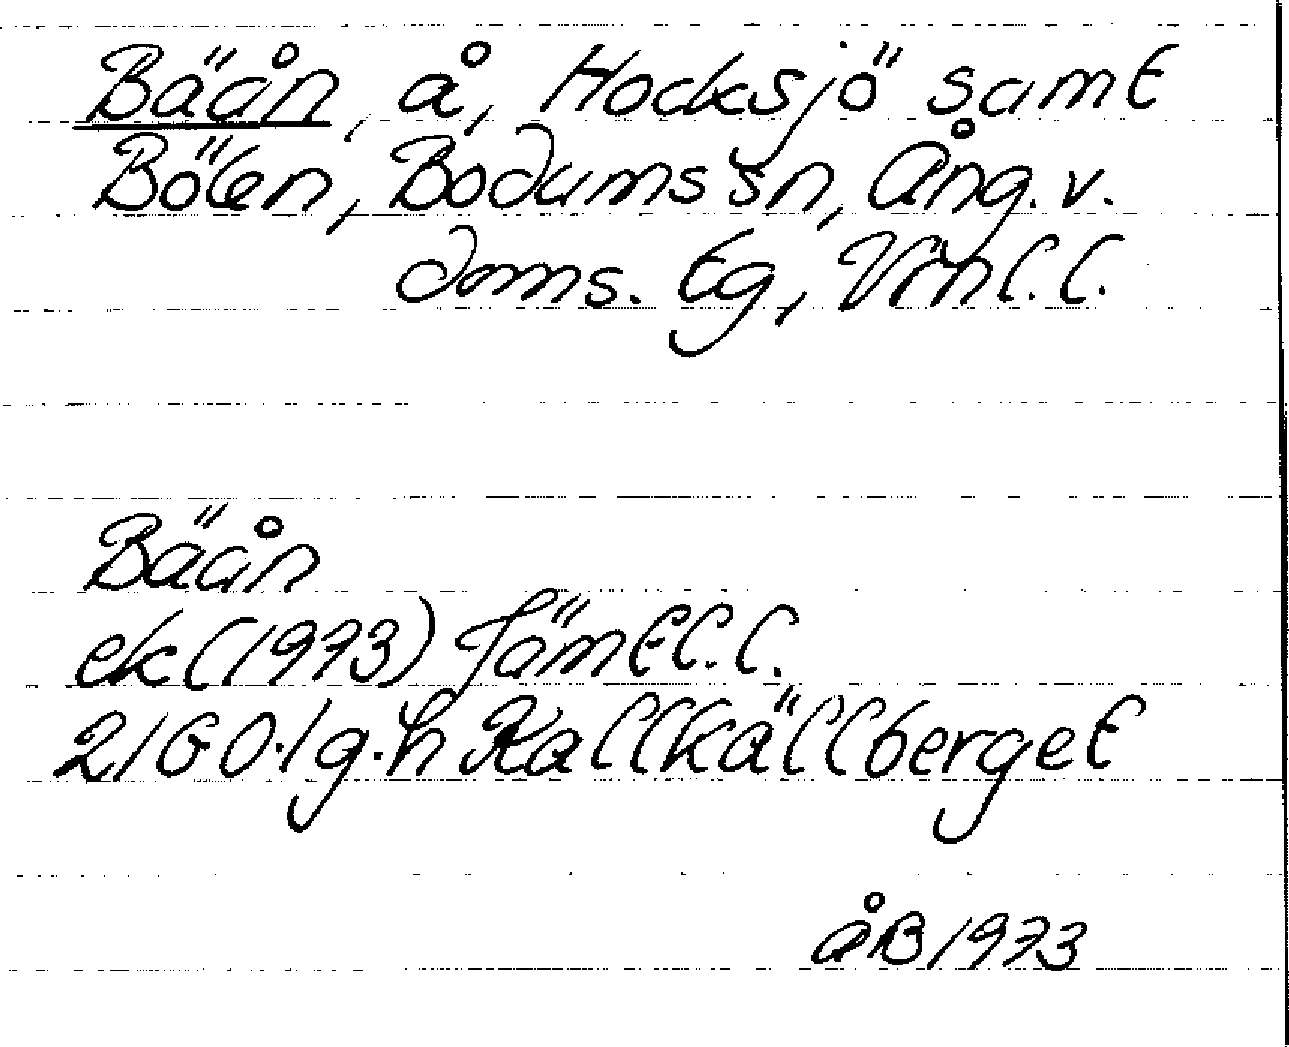 Bäån, å, Hocksjö samt
Bölen, Bodums sn, Ång. v.
doms. tg, Vrnl. l.
Bäån
ek (1973) Jämtl. l.
2160.1 g.h Kallkällberget
åB 1973